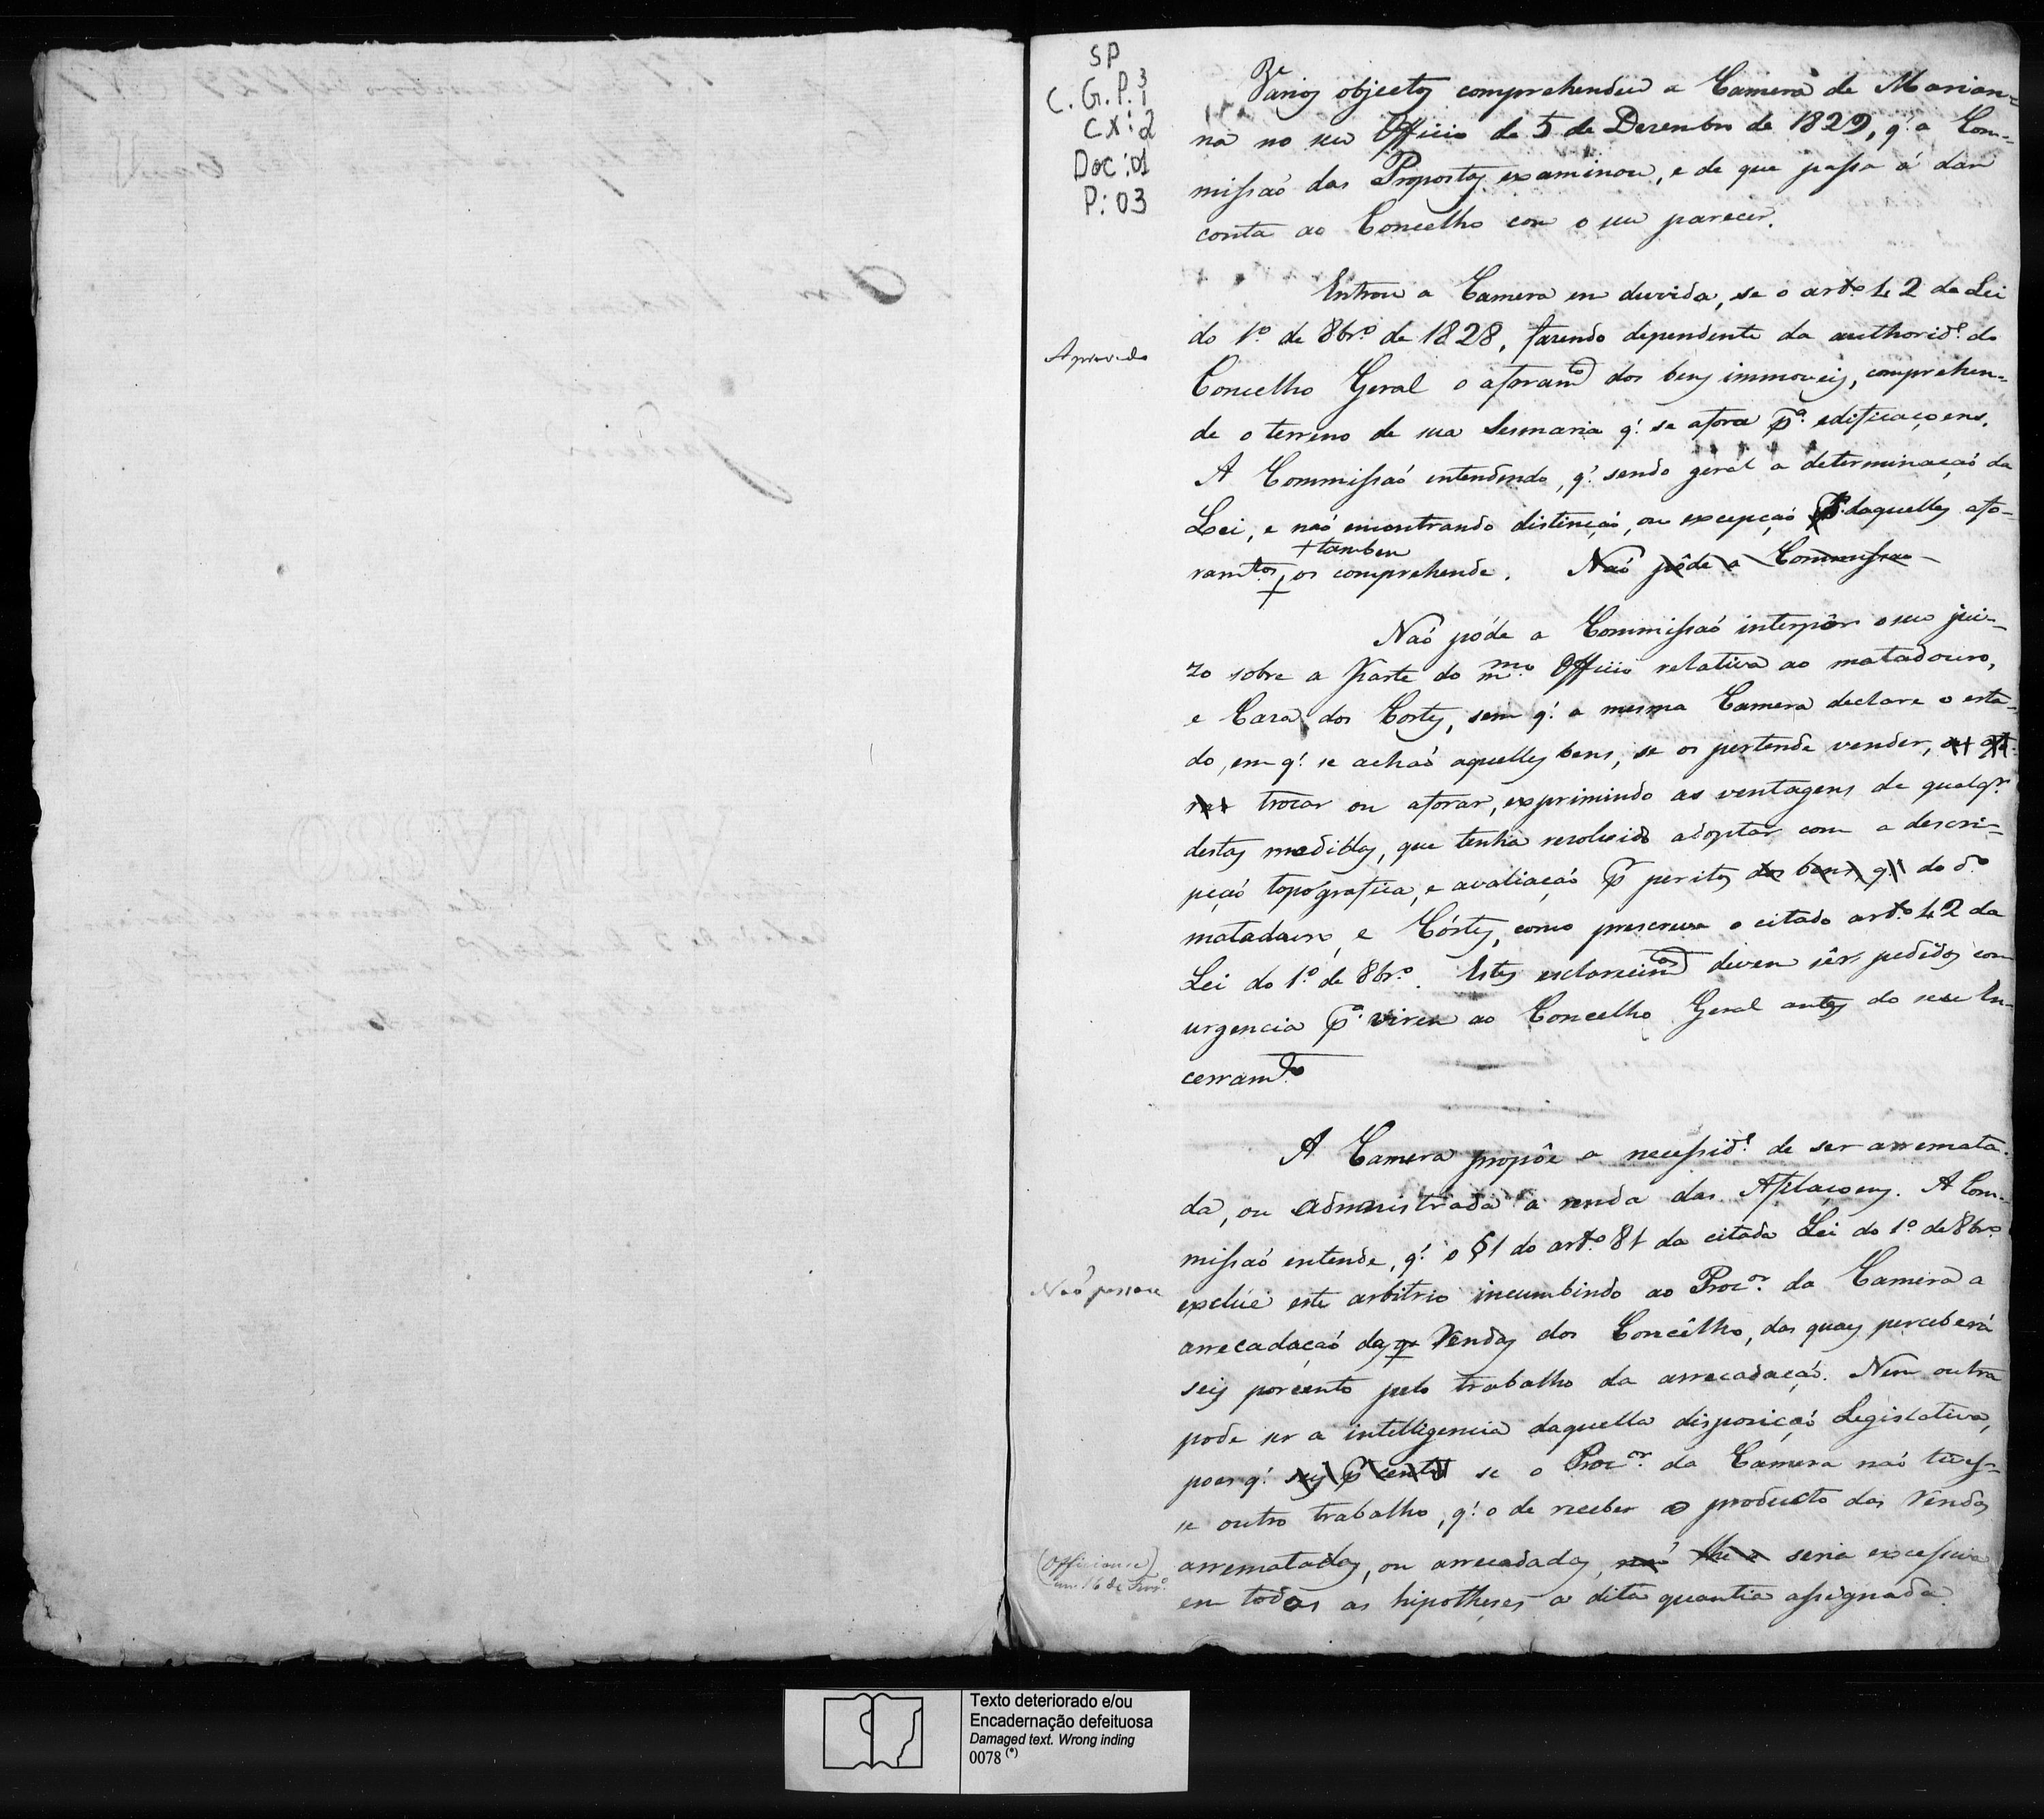 SP
C. G. P. 3
1
CX: 2
Doc: 01
P: 03
Varios objectos comprehendeu a Camera de Marian-
na no seu Officio de 5 de Dezembro de 1829, q.' a Com-
missaõ das Propostas examinou, e de que passa á dar
conta ao Concelho com o seu parecer.
Entrou a Camera em duvida, se o art.o 42 da Lei
do 1.o de 8br.o de 1828, fazendo dependente da authorid.e do
Aprovado
Concelho Geral o aforam.to dos bens immoveis, comprehen-
de o terreno de sua Sesmaria q.' se afora p.a edificaçoens.
A Commissaõ entendendo, q.' sendo geral a determinaçaõ da
Lei, e naõ encontrando distinçaõ, ou excepçaõ daquelles afo-
+ tambem
ramtos, os comprehende. Naõ póde a Commissao
Naõ póde a Commissaõ interpôr o seu jui-
zo sobre a parte do m.mo Officio relativa ao matadouro,
e Caza dos Cortes, sem q.' a mesma Camera declare o esta-
do, em q.' se achaõ aquelles bens, se os pertende vender,
trocar ou aforar, exprimindo as ventagens de qualq.r
destas medidas, que tenha resolvido adoptar com a descri-
pçaõ topografica, e avaliaçaõ p.r peritos dos bens, q.' do d.o
matadouro, e Córtes, como prescreve o citado art.o 42 da
Lei do 1.o de 8br.o. Estes esclarecim.tos devem sêr pedidos com
urgencia p.a virem ao Concelho Geral antes do seu En-
cerramt.o
A Camera propõe a necessid.e de ser arremata-
da, ou administrada a renda das Afilaçoens. A Com-
missaõ entende, q.' o §1 do art.o 81 da citada Lei do 1.o de 8br.o
Naõ passou
exclúe este arbitrio incumbindo ao Proc.or da Camera a
arrecadaçaõ das Rendas dos Concêlho, das quaes perceberá
seis porcento pelo trabalho da arrecadaçaõ. Nem outra
pode ser a intelligencia daquella disposiçaõ Legislativa,
poes q.' seis p.r cento se o Proc.or da Camera naõ tives-
se outro trabalho, q.' o de receber o producto das Rendas
(Officiou-se)
em 16 de Fevr.o
arrematadas, ou arrecadadas, seria excessiva
em todas as hipotheses a dita quantia assignada.
Texto deteriorado e/ou
Encadernação defeituosa
Damaged text. Wrong inding
0078 (*)